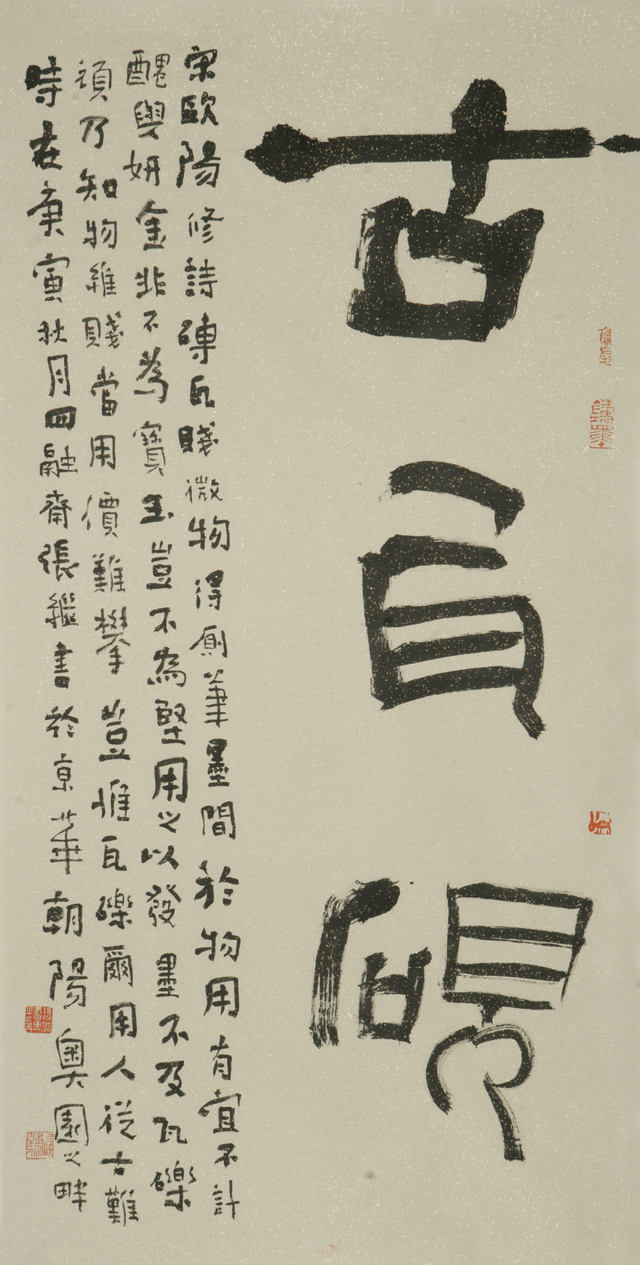 古瓦硯
宋歐陽修詩磚瓦賤微物得廁筆墨間於物用有宜不計
醜與妍金非不為寶玉豈不為堅用之以發墨不及瓦礫
頑乃知物雖賤當用價難攀豈惟瓦礫爾用人從古難
時在庚寅秋月四融齋張繼書於京華朝陽奧園之畔